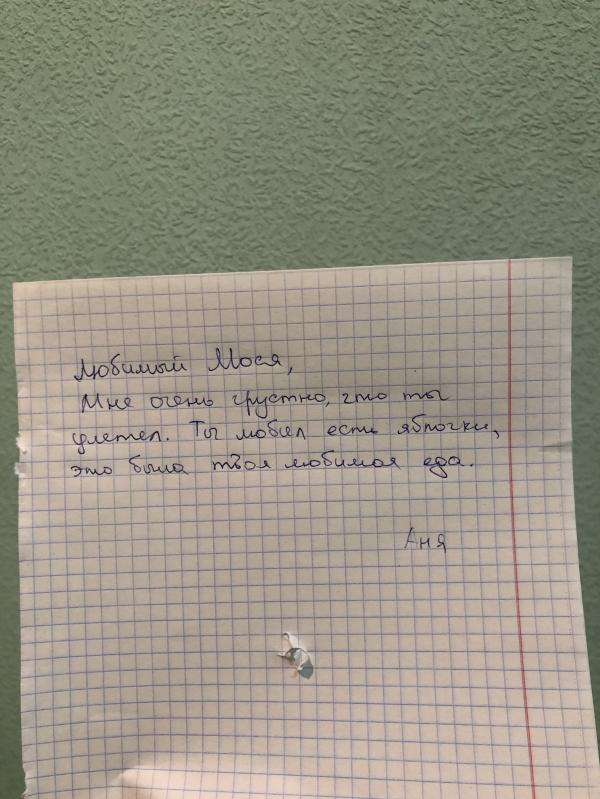 Любимый Мося,
Мне очень грустно, что ты
улетел. Ты любил есть яблочки,
это была твоя любимая еда.
Аня